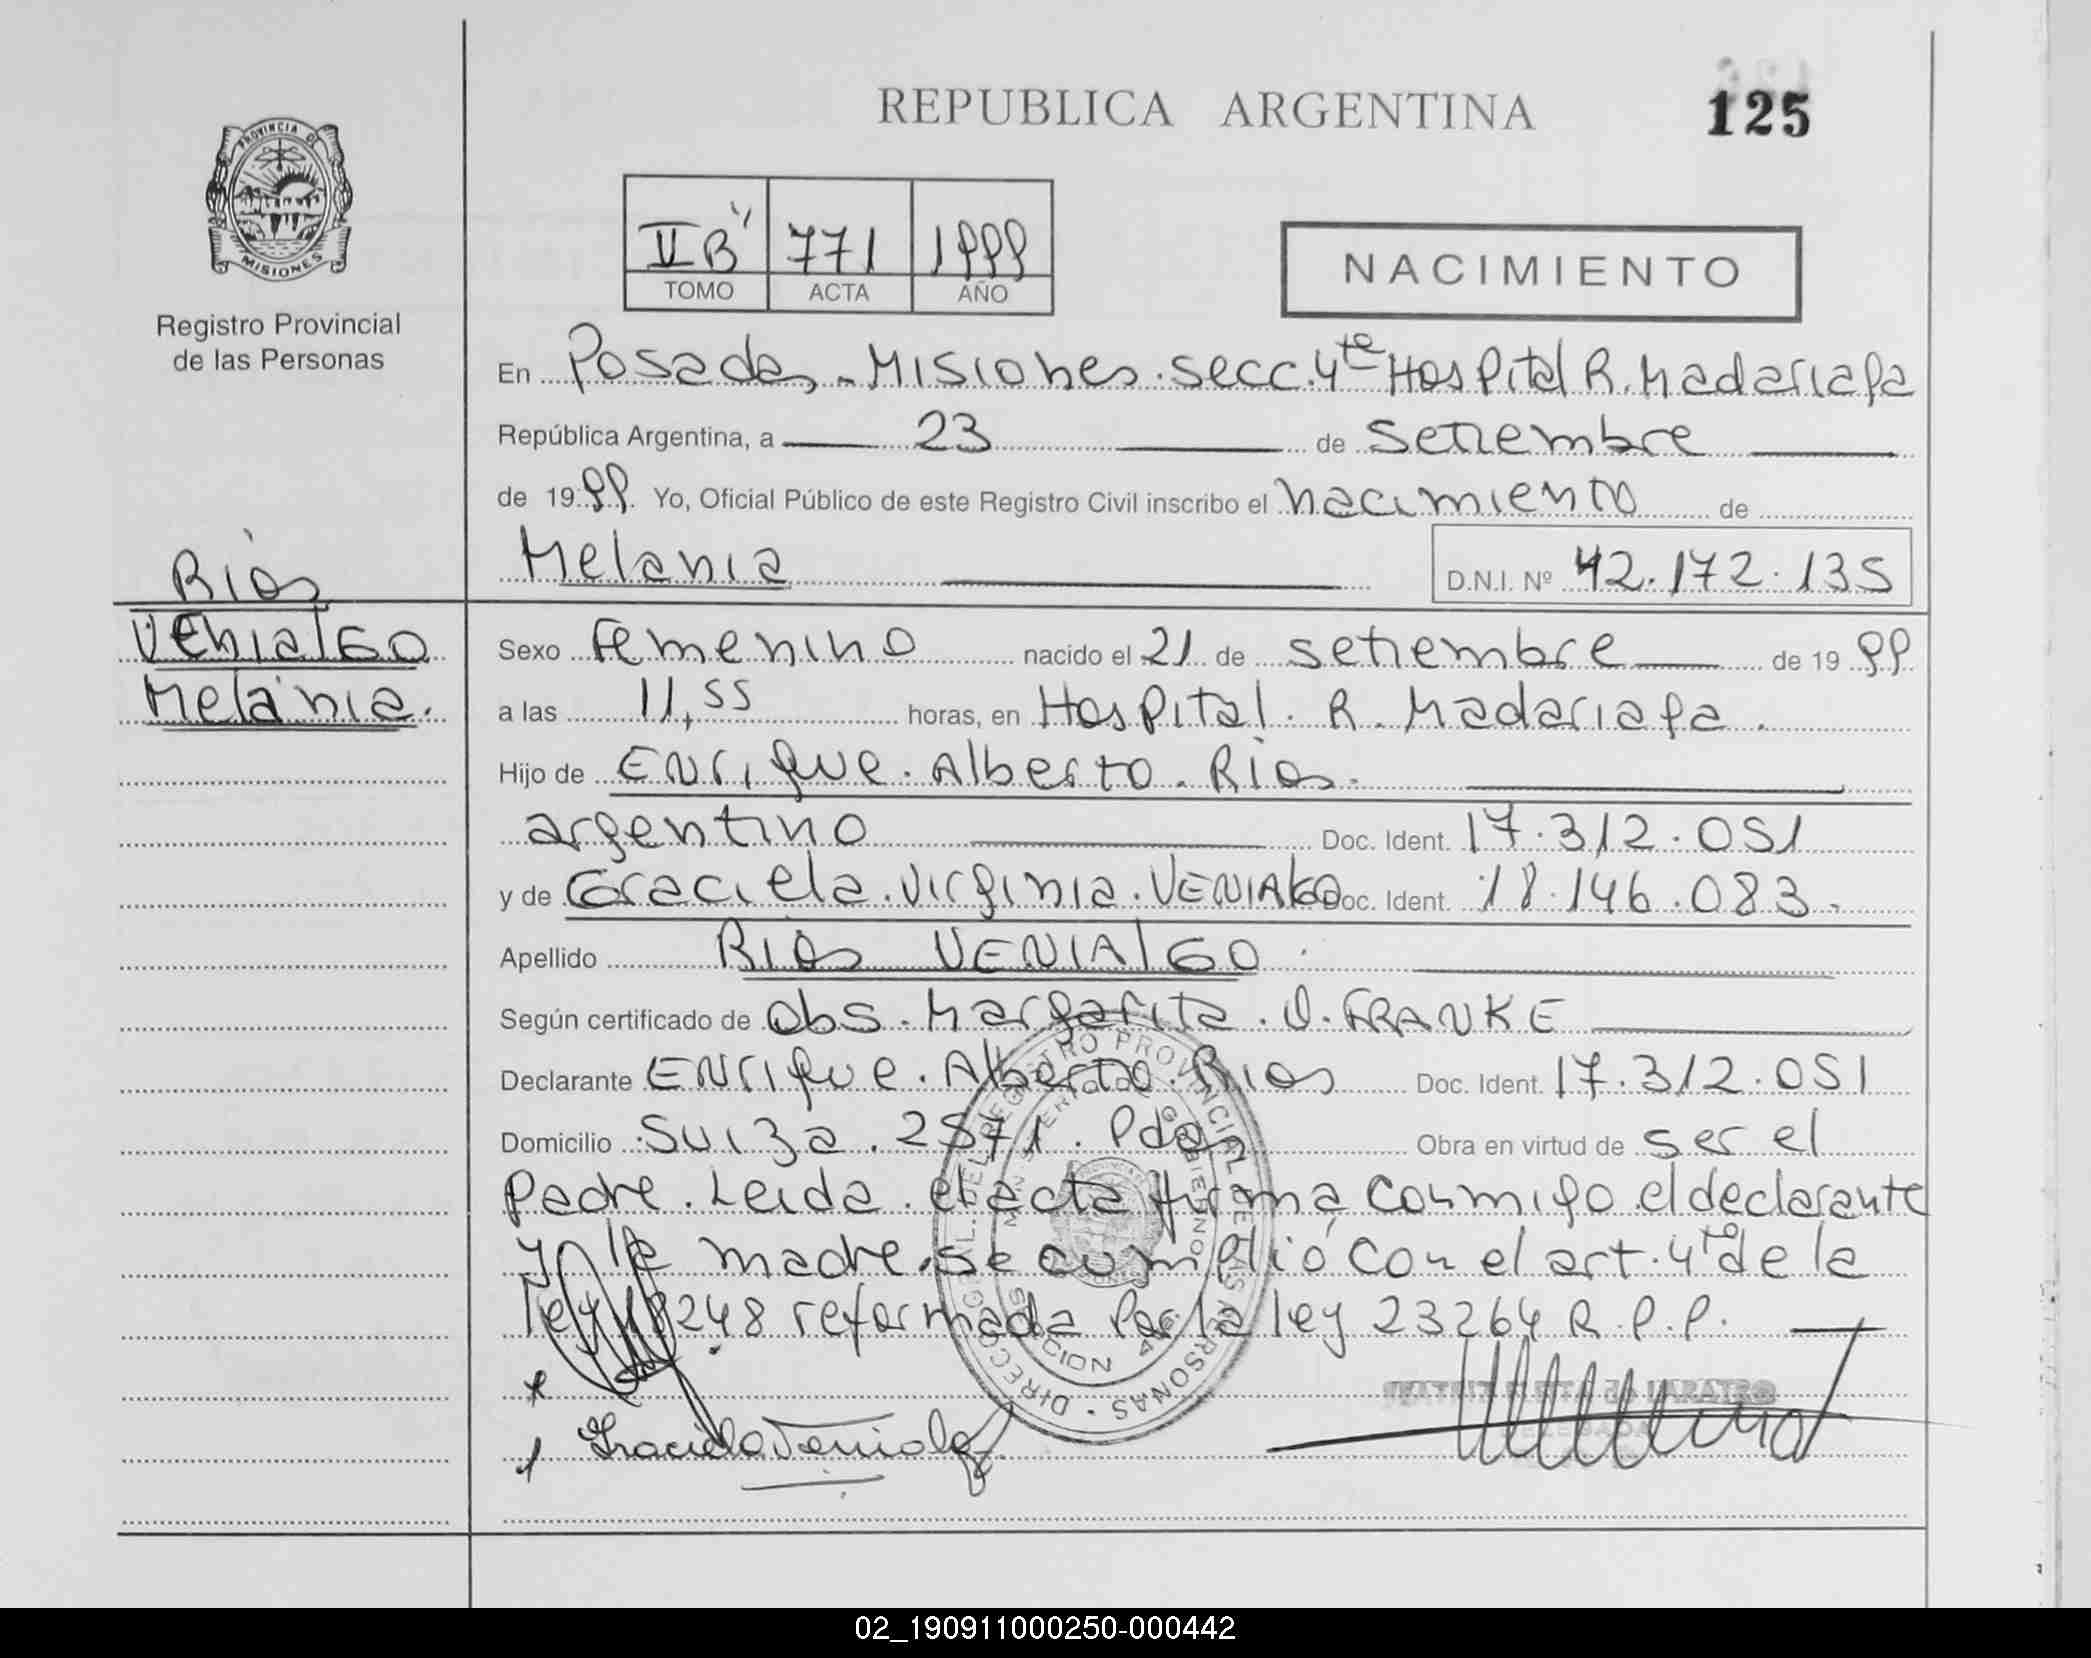 REPUBLICA ARGENTINA
125
PROVINCIA DE
MISIONES
Registro Provincial
de las Personas
II B" 771 1999
TOMO ACTA AÑO
NACIMIENTO
En Posadas - Misiones. secc. 4ta Hospital R. Madariaga
República Argentina, a 23 de Setiembre
de 1999. Yo, Oficial Público de este Registro Civil inscribo el nacimiento de
Melania D.N.I. Nº 42.172.135
Ríos
VENIALGO
Melania.
Sexo Femenino nacido el 21 de setiembre de 1999
a las 11,55 horas, en Hospital. R. Madariaga.
Hijo de ENRIQUE. Alberto. Ríos.
argentino Doc. Ident. 17.312.051
y de Graciela. Virginia. VENIALGO Doc. Ident. 18.146.083.
Apellido Ríos VENIALGO
Según certificado de Obs. Margarita. O. FRANKE
Declarante ENRIQUE. Alberto. Rios Doc. Ident. 17.312.051
Domicilio Suiza. 2571. Pdas Obra en virtud de ser el
Padre. Leida. el acta firma conmigo el declarante
y la madre. se cumplió con el art. 4to de la
ley 18248 reformada Por la ley 23264 R.P.P.
DIRECC. GRAL. DEL REGISTRO PROVINCIAL DE LAS PERSONAS
MINISTERIO DE GOBIERNO
Graciela Venialgo
02_190911000250-000442